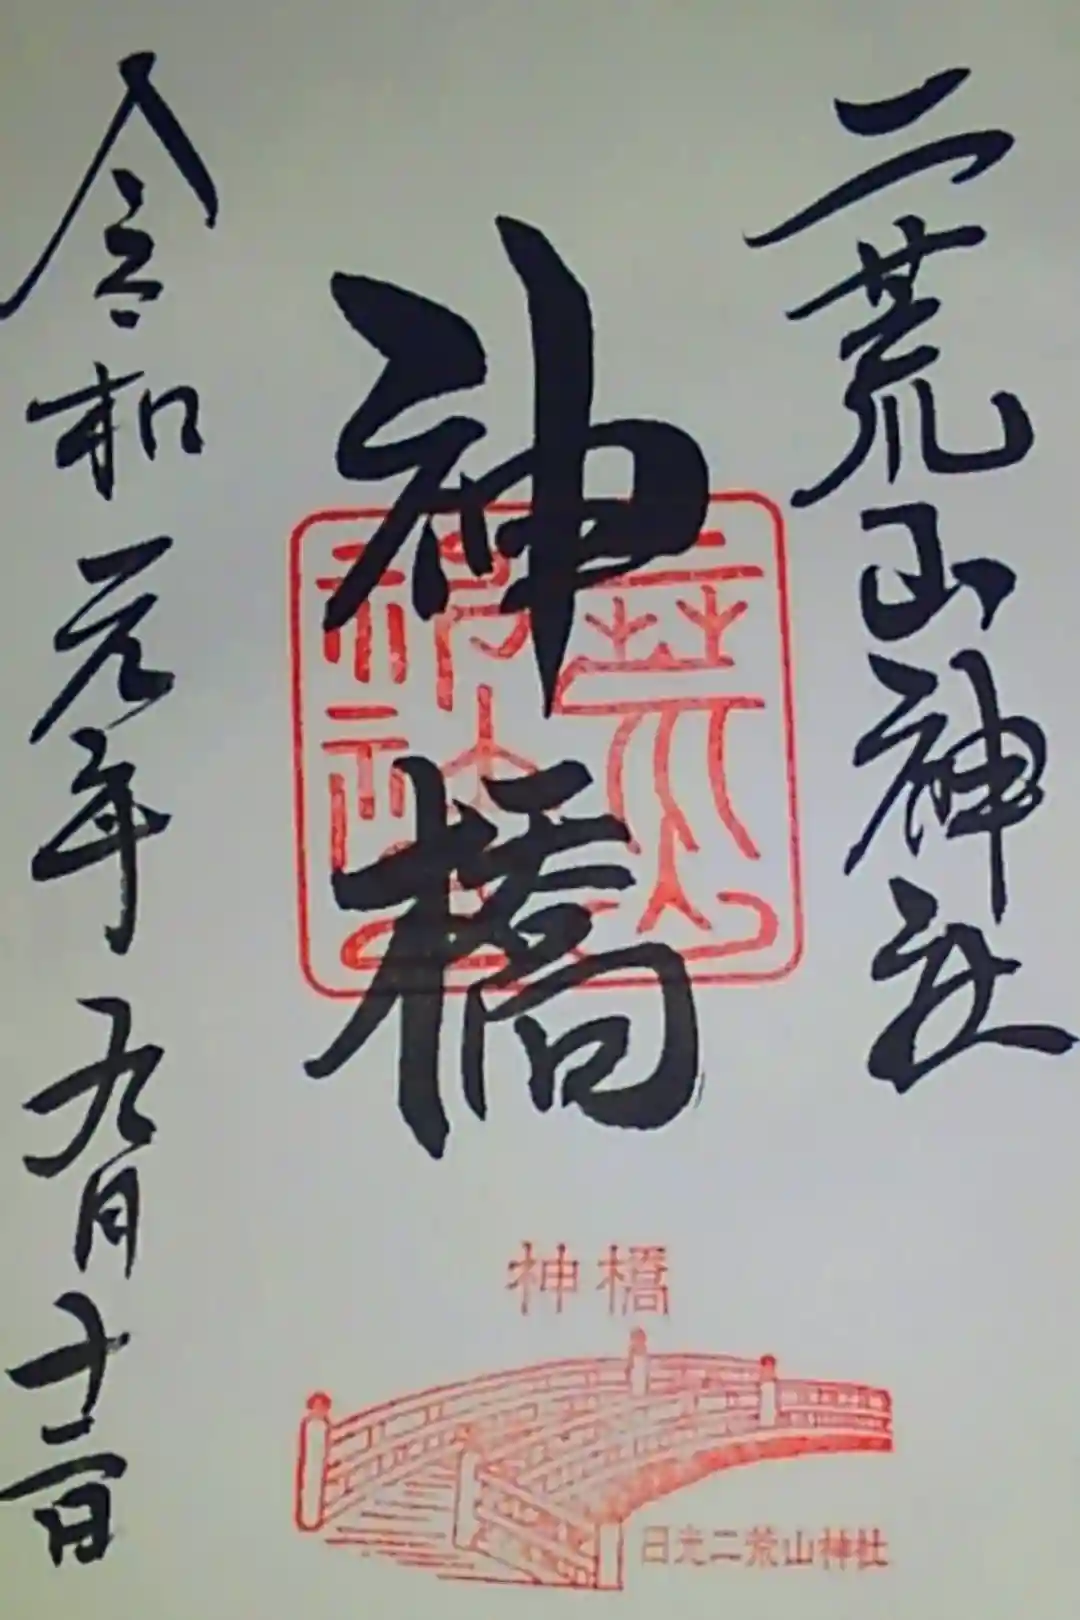 二荒山神社
神橋
令和元年九月十二日
神橋
日光二荒山神社